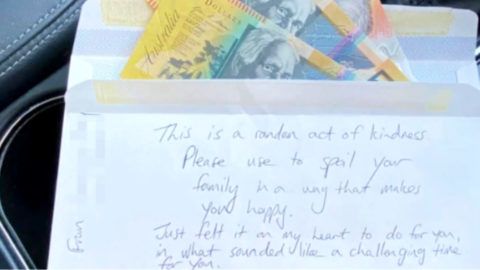 Australia
DOLLARS
This is a randon act of kindness.
Please use to spoil your
family in a way that makes
you happy.
Just felt it on my heart to do for you,
in what sounded like a challenging time
for you.
From